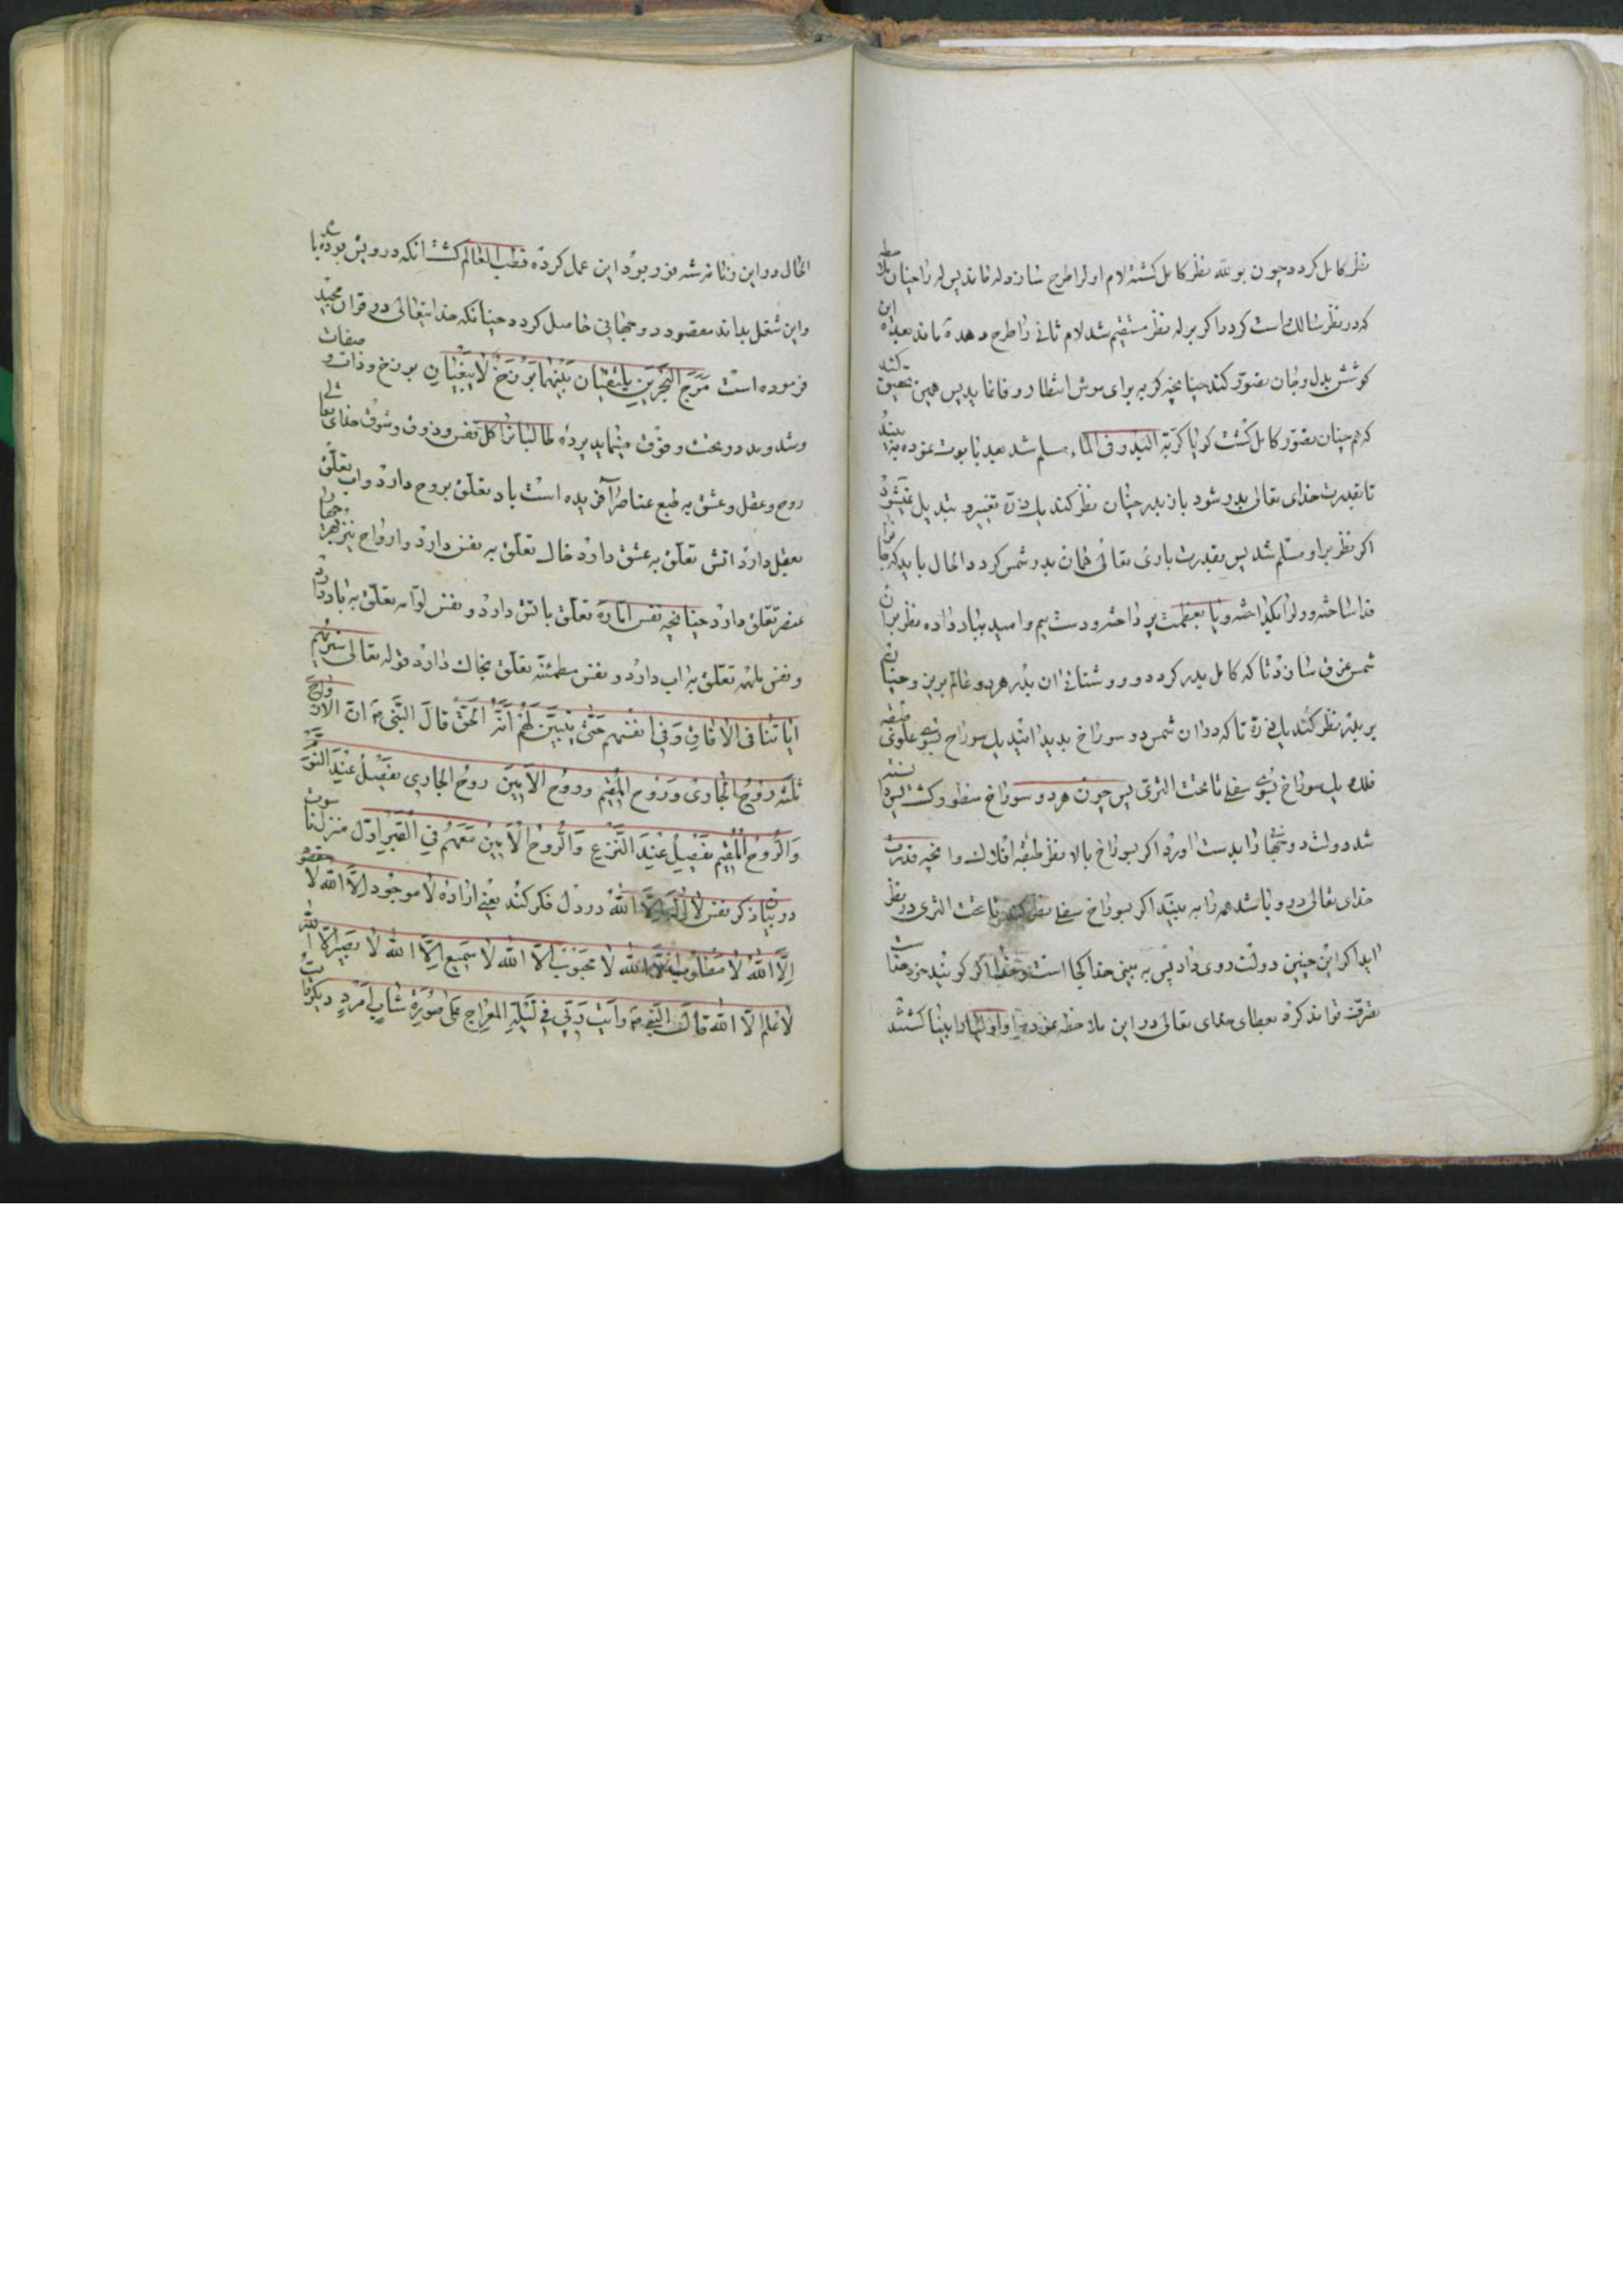 نظر کامل کردد چون بو لله نظر کامل کشت لام اول را طرح سازد له ماند پس له را چنان ملاحظه
که در نظر سالک است کردد اکر بر له نظر مستقیم شد لام ثانی را طرح دهد ه ماند بعده این
کوشش بدل و جان تصوّر کند چنانچه کربه برای موش انتظار وفا نماید پس همین تحقیق کند
که هم چنان تصوّر کامل کشت کویا کریة البدر فی الماء مسلم شد بعد تابوت نموده به بیند
تا بقدرت خدای تعالی بدر شود باز بدر چنان نظر کند یک ذرّة تغییر و تبدیل نشود
اکر نظر بر او مسلم شد پس بقدرت باری تعالی همان بدر شمس کردد الحال باید که جان را
فدا ساخته و دل را یکتا داشته و پا بعظمت پرداخته و دست بیم و امید بباد داده نظر بر ان
شمس غرق سازد تا که کامل بدر کردد و روشنائی ان بدر هر دو عالم بر بن و چنان
بر بدر نظر کند یک ذرّة تا که در ان شمس دو سوراخ پدید ایند یک سوراخ بسوی علوی طبقه
فلک یک سوراخ بسوی سفلی تا تحت الثری پس چون هر دو سوراخ منظور کشت
شد دولت دو جهان را بدست اورد اکر بسوراخ بالا نظر طبقه افلاک و انچه قدرت
خدای تعالی در و باشد همه را به بیند اکر بسوراخ سفلی نظر کند تا تحت الثری در نظر
اید اکر این چنین دولت روی داد پس به بین خدا کجا است و خدا اکر کویند جزو خدا است
تصرّف تواند کرد بعطای خدای تعالی در این ملاحظه نموده و اولیا و انبیا کشتند
الحال در این زمانه شه فرو بود این عمل کرده قطب العالم کشت انکه درویش بوده باشد
و این شغل بداند مقصود دو جهانی حاصل کردد چنانکه خدایتعالی در قران مجید
فرموده است مَرَجَ الْبَحْرَيْنِ يَلْتَقِيَانِ بَيْنَهُمَا بَرْزَخٌ لَا يَبْغِيَانِ برزخ و ذات و صفات
و شد و مد در تحت و فوق مینماید پرده طالبانرا کل نفس و ذوق و شوق خدای تعالی
روح و عقل و عشق به طبع عناصر آفریده است باد تعلّق بروح دارد و اب تعلّق
بعقل دارد اتش تعلّق به عشق دارد خاک تعلّق به نفس دارد و ارواح نیز بهر چهار
عنصر تعلّق دارد چنانچه نفس امّاره تعلّق باتش دارد و نفس لوّامه تعلّق به باد دارد
و نفس ملهمه تعلّق به اب دارد و نفس مطمئنّه تعلّق بخاک دارد قوله تعالی سنریهم
ایاتنا فی الافاق وَفی انفسهم حَتّی یتبیّن لَهم اَنّه الحَقّ قالَ النّبی ص انّ الارواح
ثلثه روح الجاری وَروح المقیم وروح الامین روح الجاری یفصل عند النوم
وَالرّوح المقیم یفصل عند النّزع وَالرّوح الامین معهم فی القبر اوّل منزل ناسوت
در بیان ذکر نفس لا اله الّا الله در دل فکر کند یعنی اراده لا موجود الّا الله لا مقصود
اِلّا الله لا مطلوب الّا الله لا محبوب الّا الله لا سمیع الّا الله لا بصیر الّا الله
لا علم الّا الله قال النّبی ص رایت ربّی فی لیلة المعراج علی صورة شاب امرد دیکر